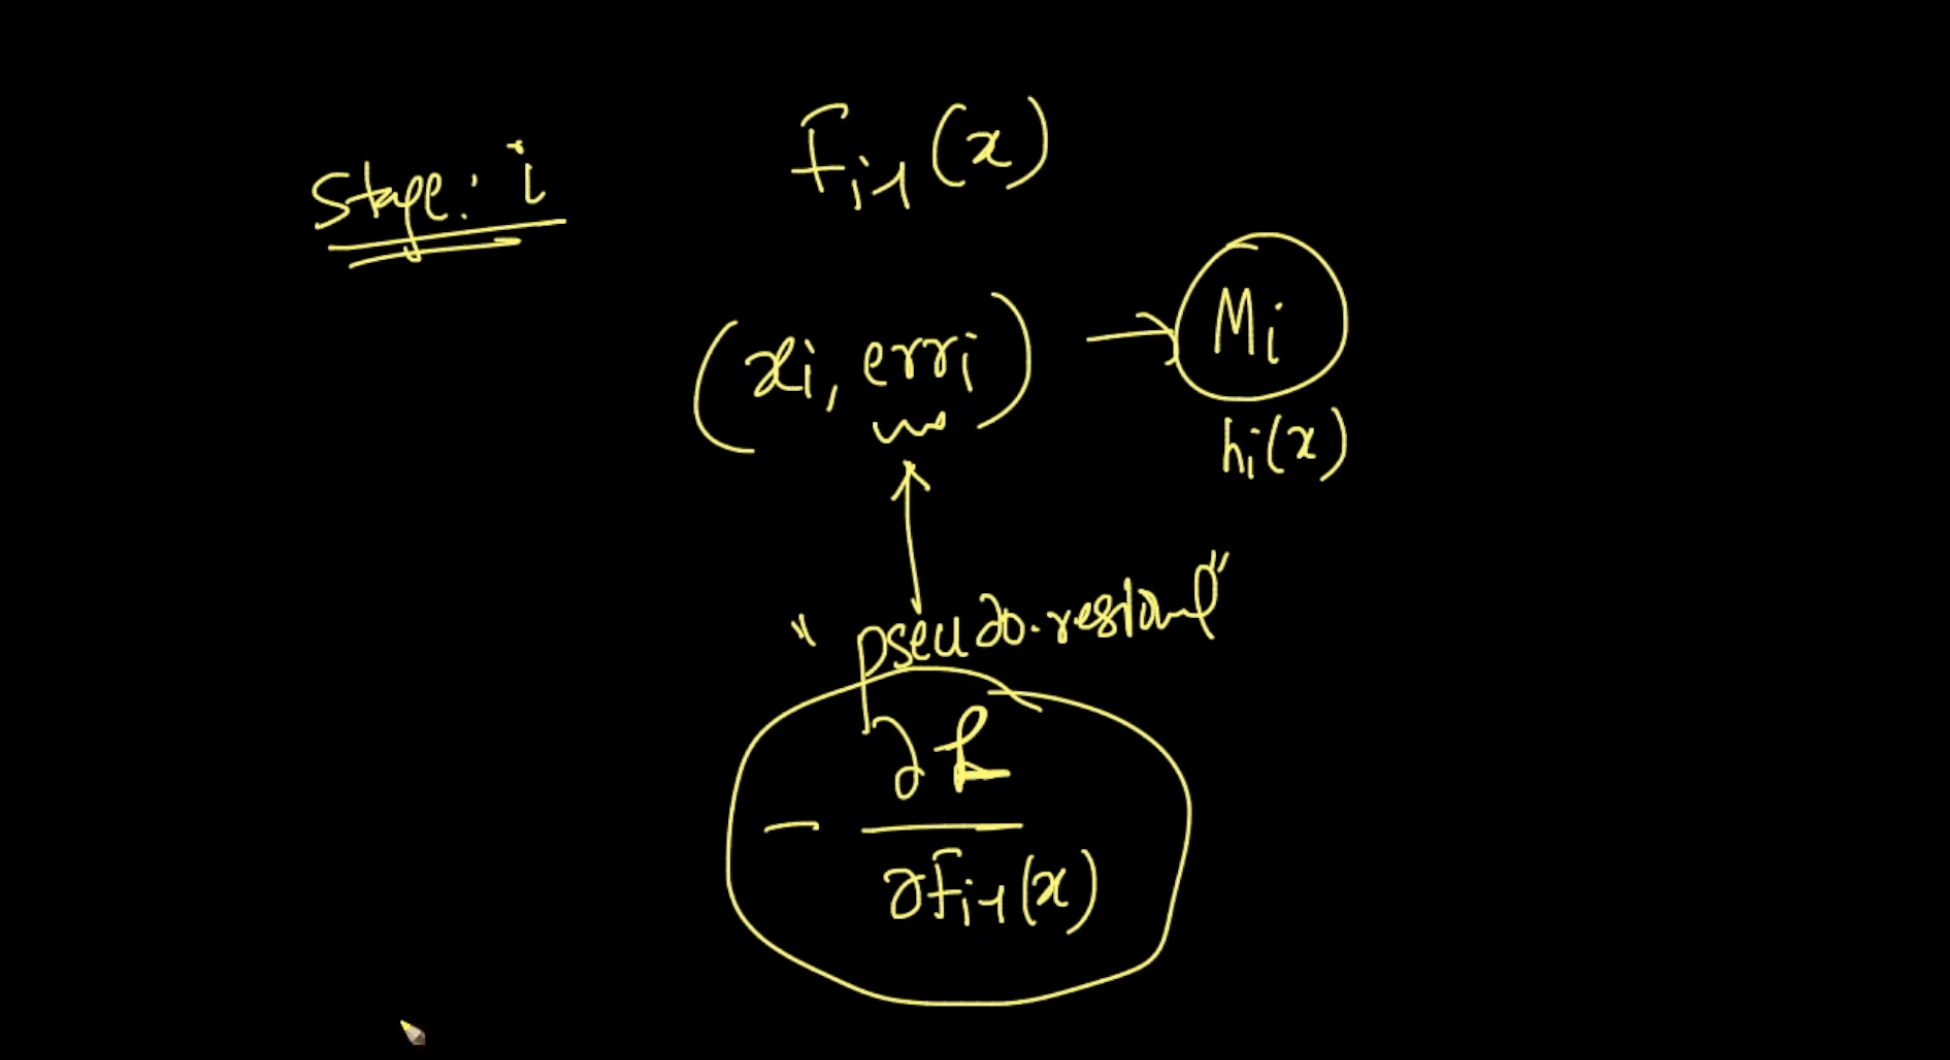 Stage: i
F_{i-1}(x)
(x_i, err_i) → M_i
h_i(x)
"pseudo-residual"
- ∂L
∂F_{i-1}(x)